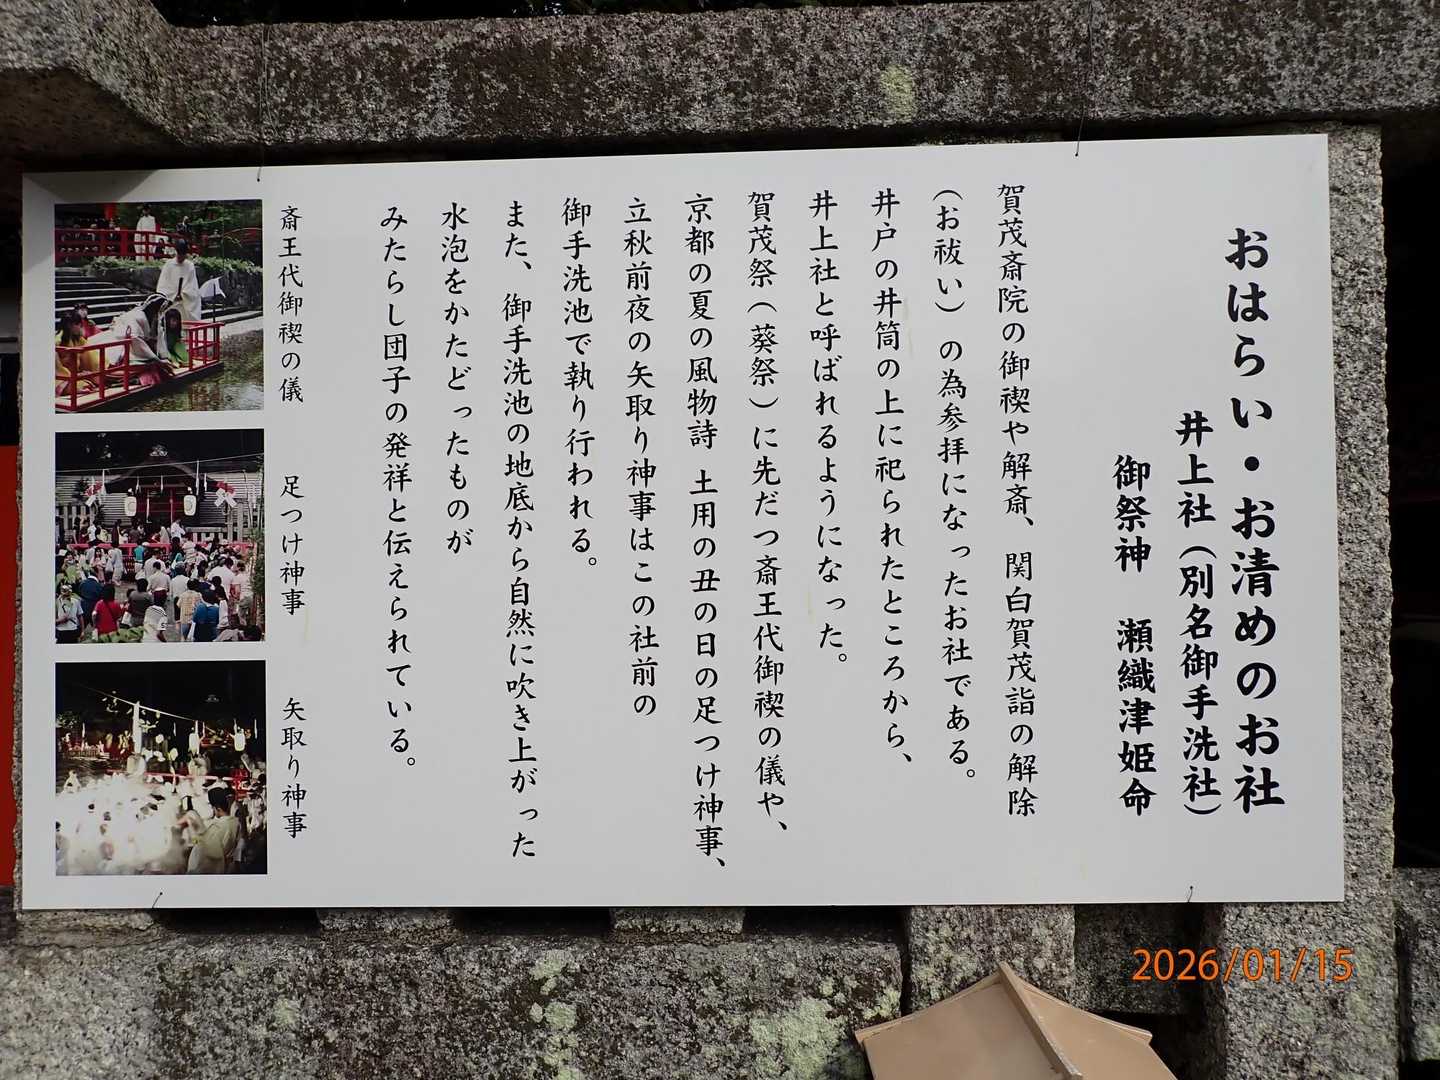 おはらい・お清めのお社
井上社（別名御手洗社）
御祭神　瀬織津姫命
賀茂斎院の御禊や解斎、関白賀茂詣の解除
（お祓い）の為参拝になったお社である。
井戸の井筒の上に祀られたところから、
井上社と呼ばれるようになった。
賀茂祭（葵祭）に先だつ斎王代御禊の儀や、
京都の夏の風物詩 土用の丑の日の足つけ神事、
立秋前夜の矢取り神事はこの社前の
御手洗池で執り行われる。
また、御手洗池の地底から自然に吹き上がった
水泡をかたどったものが
みたらし団子の発祥と伝えられている。
斎王代御禊の儀
足つけ神事
矢取り神事
2026/01/15